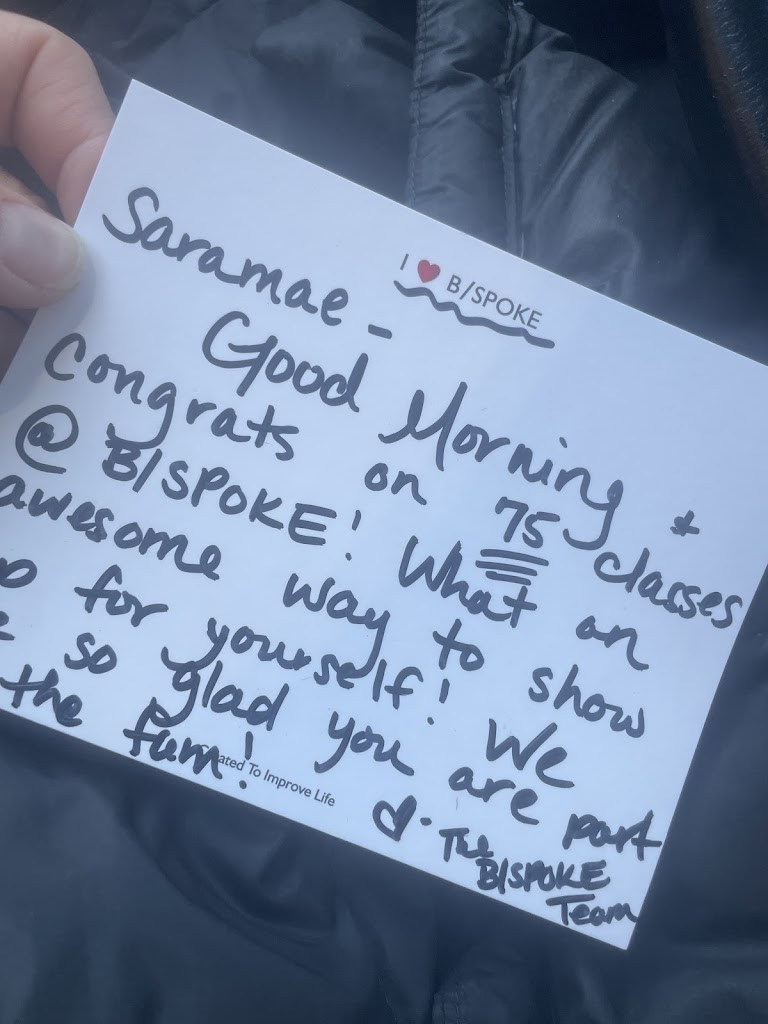 I ❤ B/SPOKE
Saramae -
Good Morning +
congrats on 75 classes
@ B/SPOKE! What an
awesome way to show
for yourself! We
so glad you are part
the fam!
Created To Improve Life
♡. The
B/SPOKE
Team